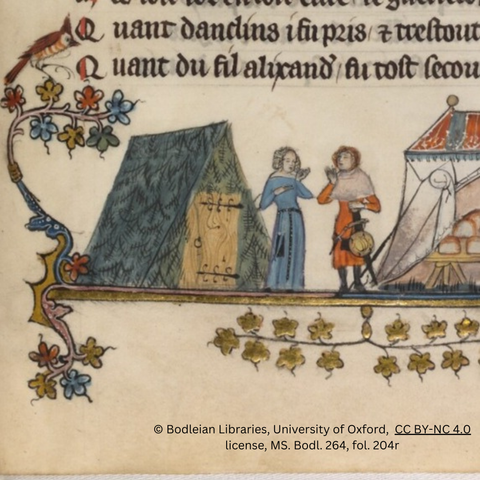 Quant danclins i fu pris ⁊ trestout
Quant du fil alixand' fu tost secou
© Bodleian Libraries, University of Oxford, CC BY-NC 4.0
license, MS. Bodl. 264, fol. 204r